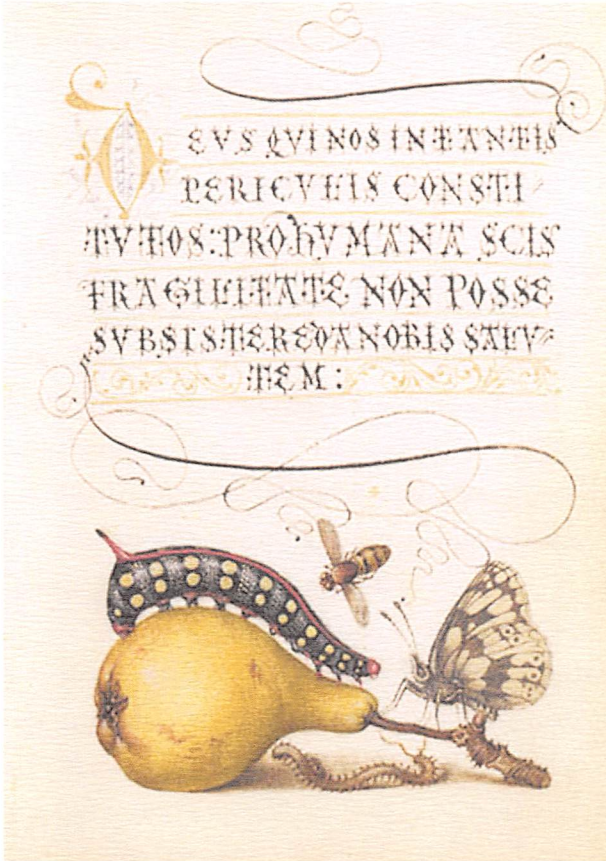 DEVS QVI NOS IN TANTIS
PERICVLIS CONSTI
TVTOS: PRO hVMANA SCIS
FRAGILITATE NON POSSE
SVBSISTERE DA NOBIS SALV=
TEM: